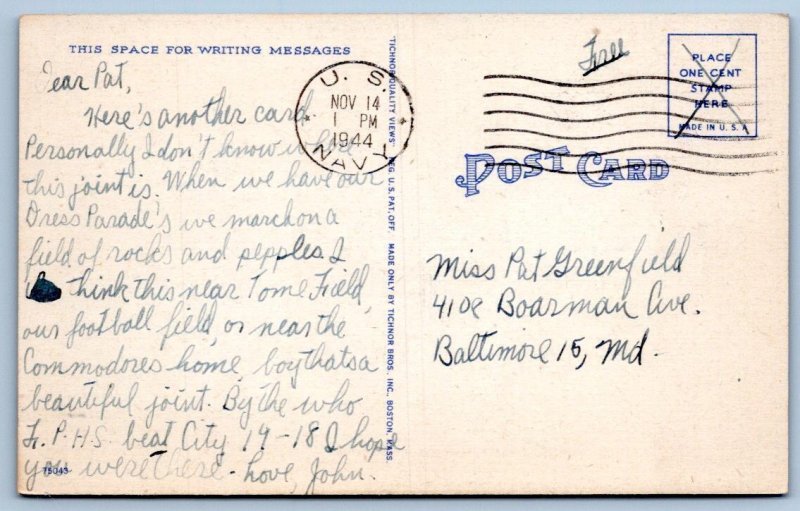 THIS SPACE FOR WRITING MESSAGES
Dear Pat,
Here's another card.
Personally I don't know where
this joint is. When we have our
Dress Parade's we march on a
field of rocks and pepples I
think this near Tome Field,
our football field, or near the
Commodores home, boy thats a
beautiful joint. By the who
F.P.H.S. beat City 19-18 I hope
you were there - Love, John.
75043
"TICHNOR QUALITY VIEWS" REG. U. S. PAT. OFF. MADE ONLY BY TICHNOR BROS. INC., BOSTON, MASS.
U. S.
NOV 14
1 PM
1944
NAVY
Free
PLACE
ONE CENT
STAMP
HERE
MADE IN U. S. A.
POST CARD
Miss Pat Greenfield
4108 Boarman Ave.
Baltimore 15, Md.